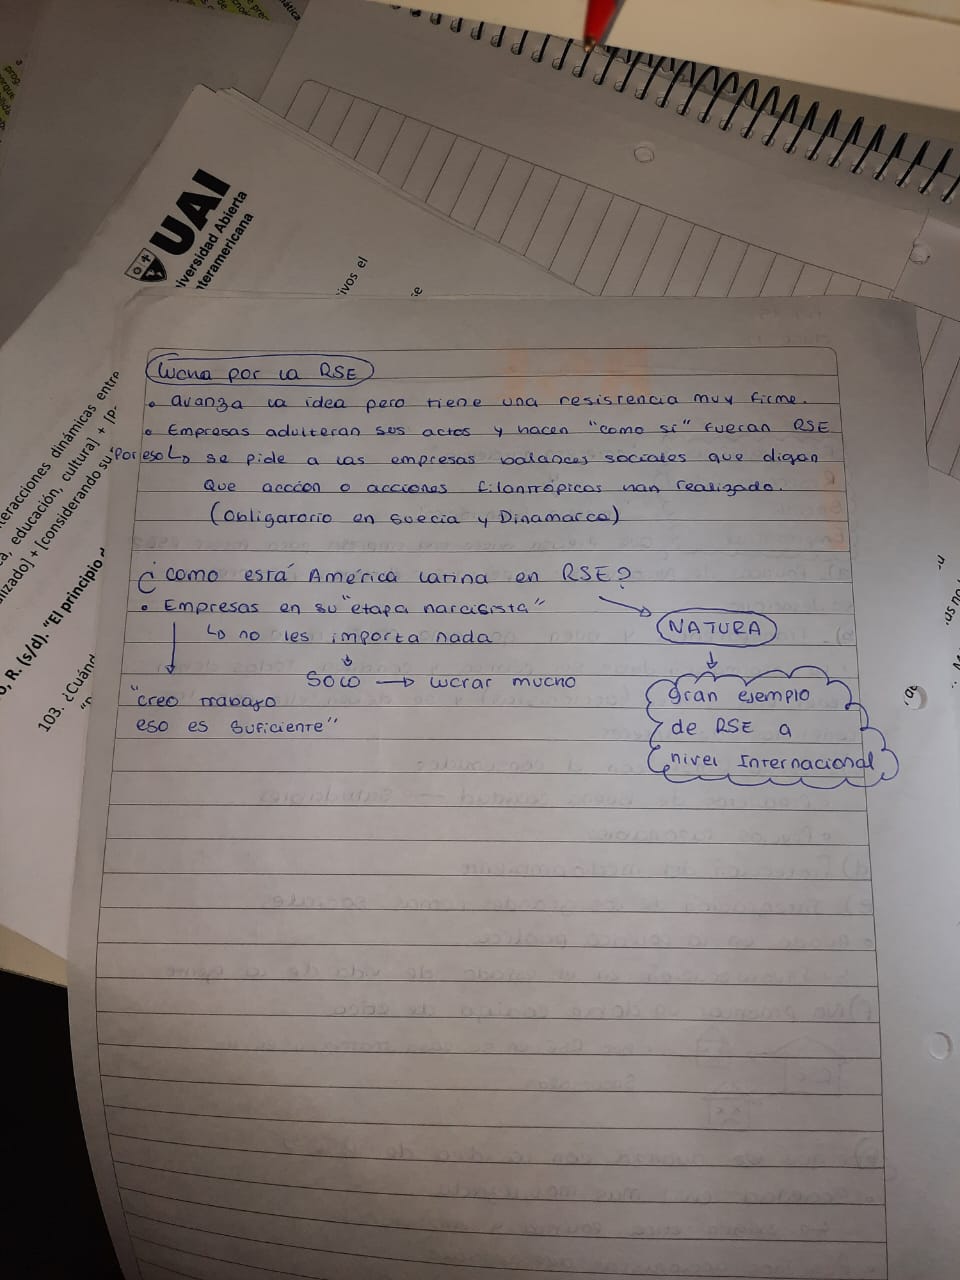 UAI
iversidad Abierta
nteramericana
ivos el
teracciones dinámicas entre
a, educación, cultura] + [p-
lizado] + [considerando su
o, R. (s/d). "El principio d
103. ¿Cuánd
Lucha por la RSE
• avanza la idea pero tiene una resistencia muy firme.
• Empresas adulteran sus actos y hacen "como si" fueran RSE
Por eso ↳ se pide a las empresas balances sociales que digan
Que acción o acciones filantrópicas han realizado.
(Obligatorio en Suecia y Dinamarca)
¿como está América Latina en RSE?
• Empresas en su "etapa narcisista"
↳ no les importa nada
↓
SOLO → lucrar mucho
"creo trabajo
eso es suficiente"
NATURA
↓
gran ejemplo
de RSE a
nivel Internacional